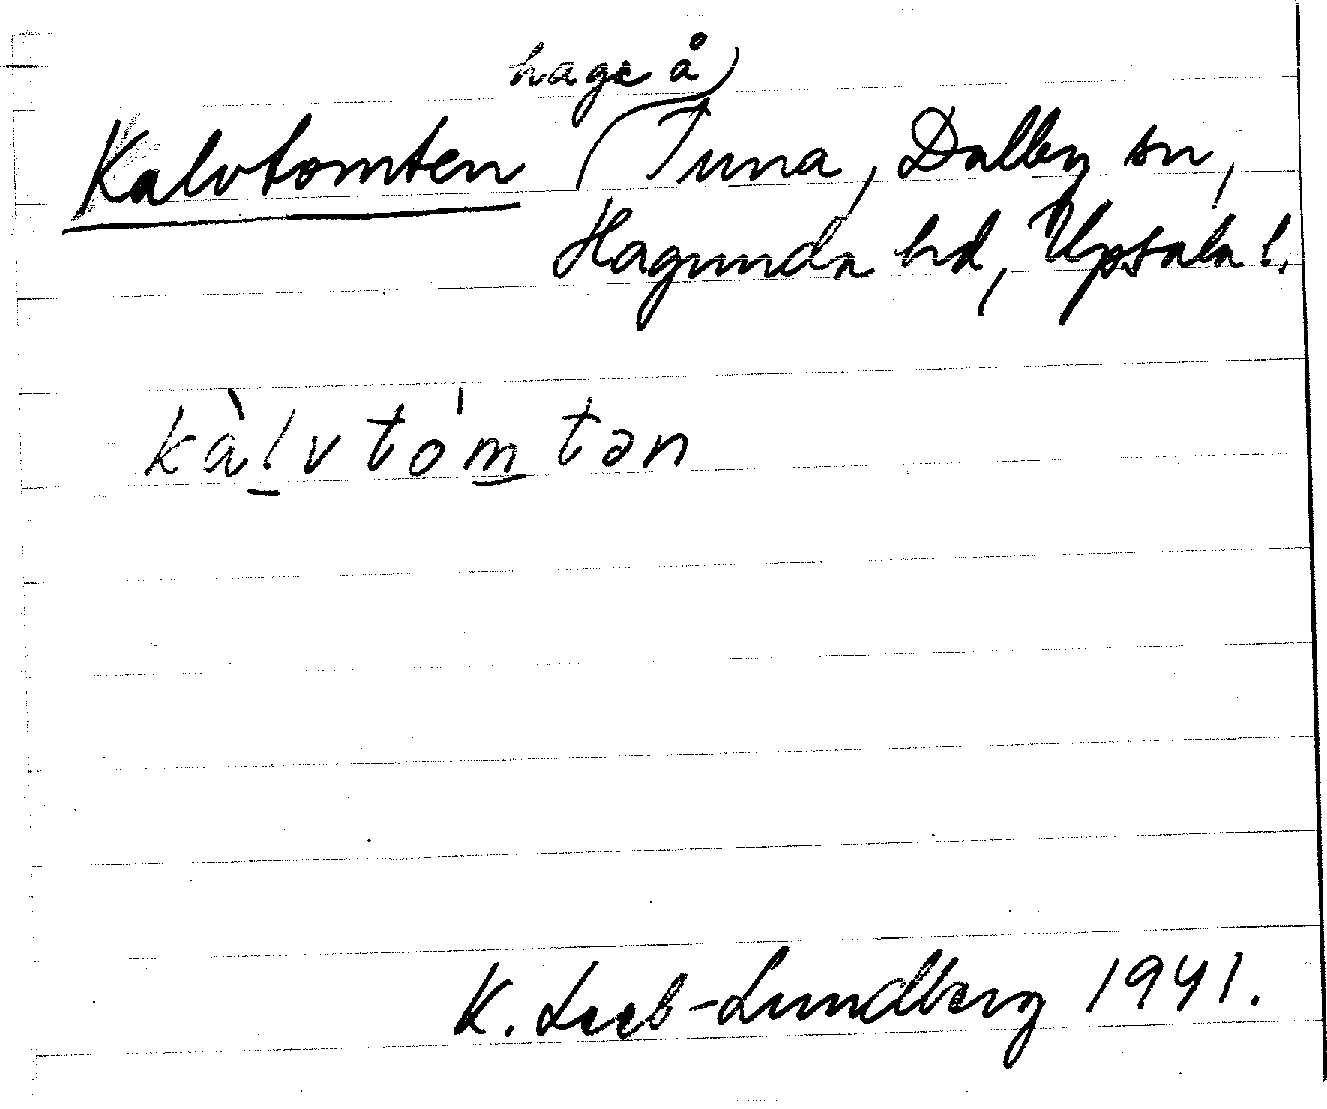 hage å
Kalvtomten Tuna, Dalby sn,
Hagunda hd, Upsala l.
kàl̲vtóm̲tən
K. Leeb-Lundberg 1941.